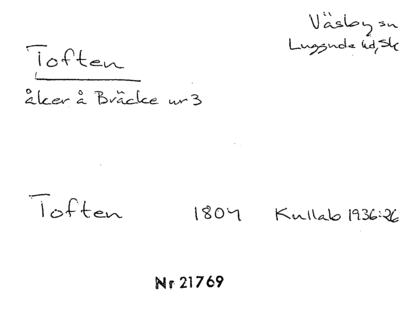 Väsby sn
Luggude hd, Sk
Toften
åker å Bräcke nr 3
Toften 1804 Kullab 1936:26
Nr 21769